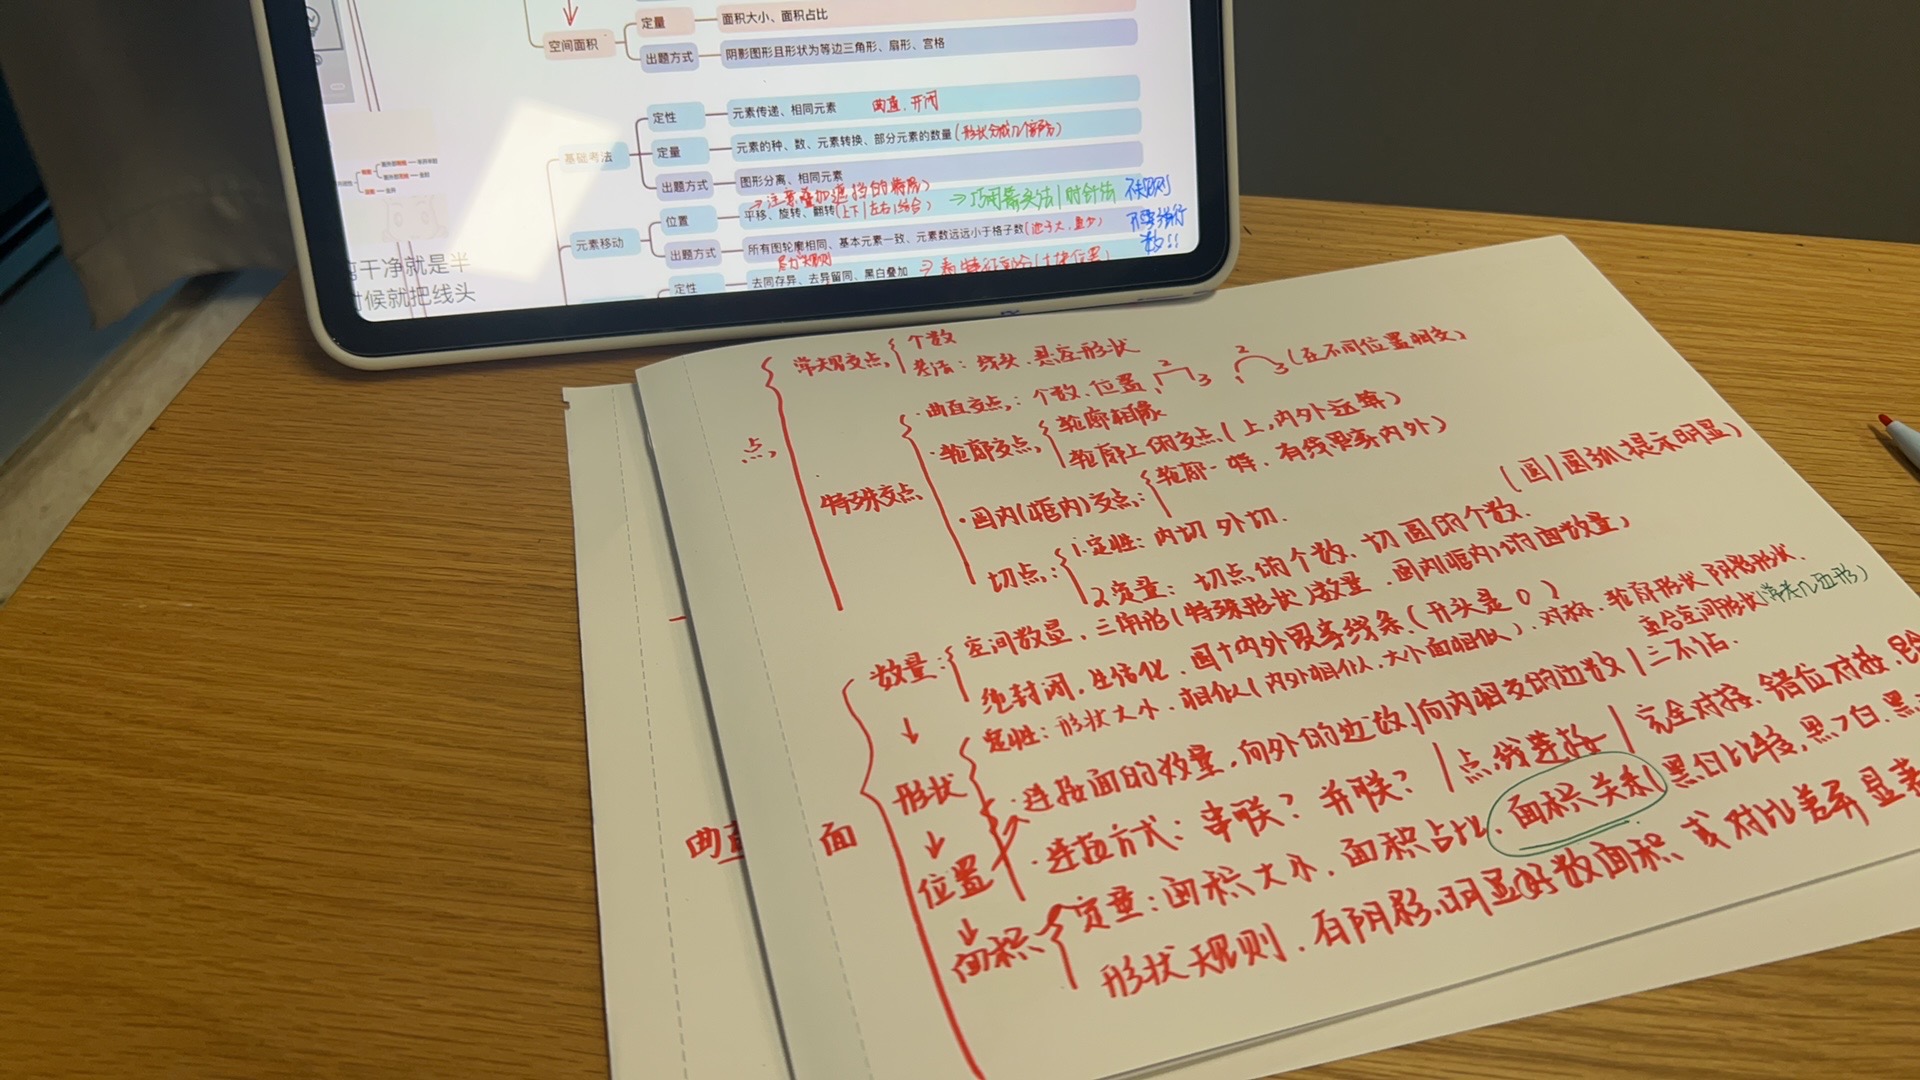 定量
面积大小、面积占比
空间面积
出题方式
阴影图形且形状为等边三角形、扇形、宫格
定性
元素传递、相同元素
曲直、开闭
基础考法
定量
元素的种、数、元素转换、部分元素的数量(形状分成几个部分)
出题方式
图形分离、相同元素
→注意叠加遮挡的情况)
元素移动
位置
平移、旋转、翻转(上下|左右|结合)
→巧用箭头法|时针法
不规则
出题方式
所有图轮廓相同、基本元素一致、元素数远远小于格子数(池子大,量少)
定性
去同存异、去异留同、黑白叠加
干净就是半
候就把线头
点
常规交点
个数
考法:线头、悬在形状
特殊交点
·曲直交点:个数、位置
1 2 3
1 2 3
(在不同位置相交)
·轮廓交点
轮廓相像
轮廓上的交点(上,内外运算)
·图内(框内)交点:
轮廓一样,有线贯穿内外)
切点:
1.定性:内切 外切.
2.定量:切点的个数、切圆的个数.
(圆|圆弧提示明显)
面
数量:
空间数量,三角形(特殊形状)数量,图内(框内)的面数量)
纯封闭,生活化,图内外贯穿线条(开头是0)
形状
定性:形状大小,相似(内外相似,大小面相似),对称,轮廓形状 阴影形状.
(常考几边形)
位置
连接面的数量,向外的边数|向内相交的边数|三不沾.
·连接方式:串联?并联?|点线连接|完全对接,错位对接,
面积
定量:面积大小,面积占比,面积关系(黑白比较,黑>白,黑
形状规则,有阴影,明显好数面积 或对比差异显著
曲直